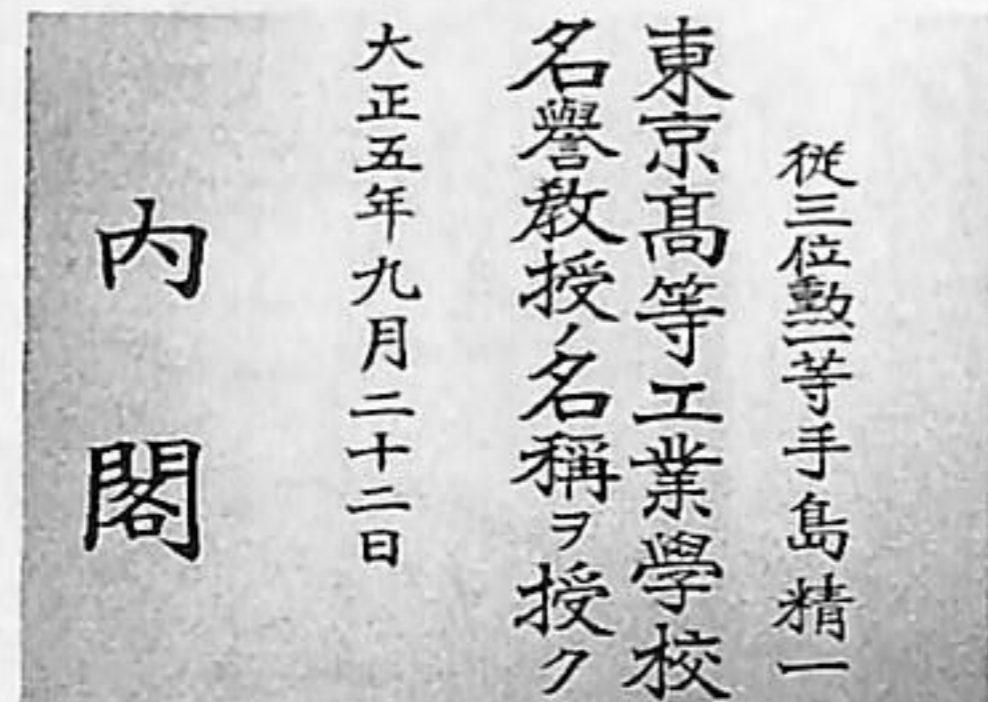 從三位勲一等手島精一
東京髙等工業學校
名譽教授ノ名稱ヲ授ク
大正五年九月二十二日
内閣